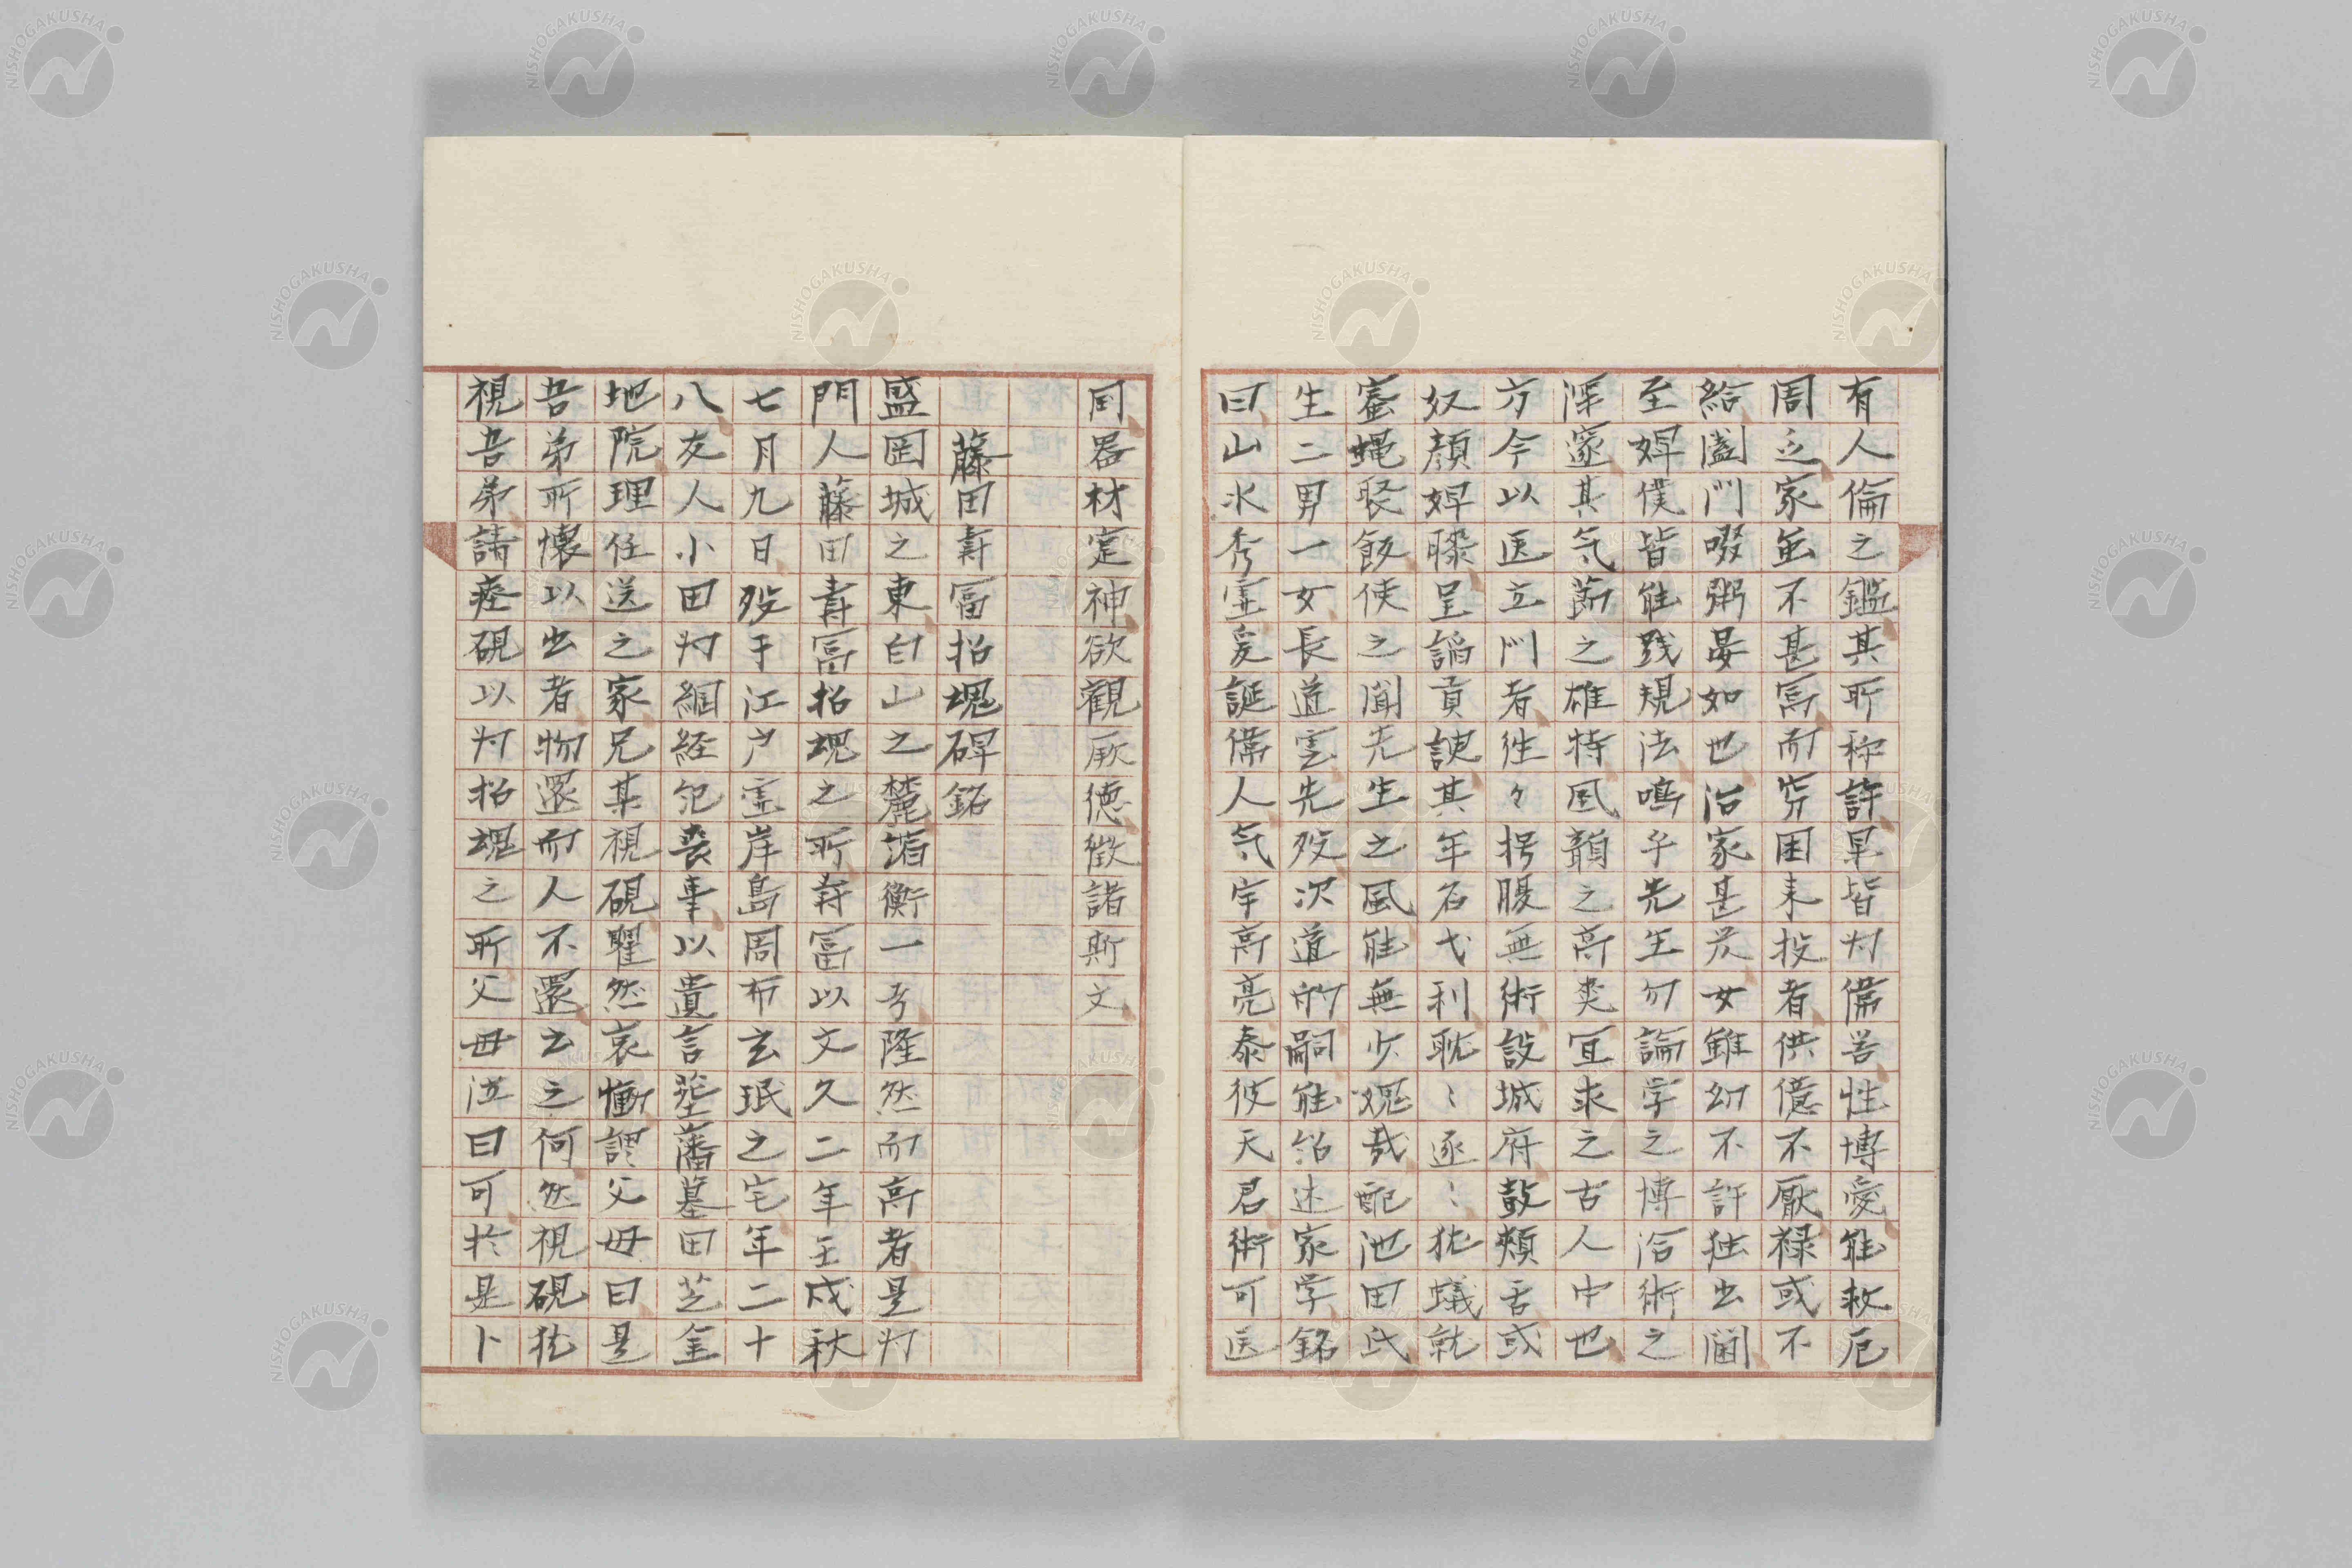 有人倫之鑑其所称許早皆为偉器性博愛能救厄
周之家並不甚富而窮困来投者供億不厭禄或不
給闔门啜粥晏如也治家甚严女雖幼不許独出閫
至婢僕皆能践規法嗚乎先生勿論学之博洽術之
深邃其気節之雄特風韻之高爽宜求之古人中也
方今以医立门者往々枵腹無術設城府鼓頰舌或
奴顔婢膝呈諂貢諛其年名弋利耽〻逐〻犹蟻就
蜜蝿聚飯使之聞先生之風能無少愧哉配池田氏
生二男一女長道雲先歿次道的嗣能紹述家学銘
曰山水秀霊爰誕偉人気宇高亮泰彼天君術可医
国器材寔神欲觀厥徳徴諸斯文
藤田壽冨招魂碑銘
盛岡城之東白山之麓 衡一 隆然而高者是为
門人藤田壽冨招魂之所壽冨以文久二年壬戌秋
七月九日歿于江户霊岸島周布玄珉之宅年二十
八友人小田为綱経紀喪事以遺言葬藩墓田芝金
地院理任送之家兄某視硯瞿然哀慟謂父母曰是
吾弟所懐以出者物還而人不還云之何然視硯犹
視吾弟請瘞硯以为招魂之所父母泣曰可於是卜